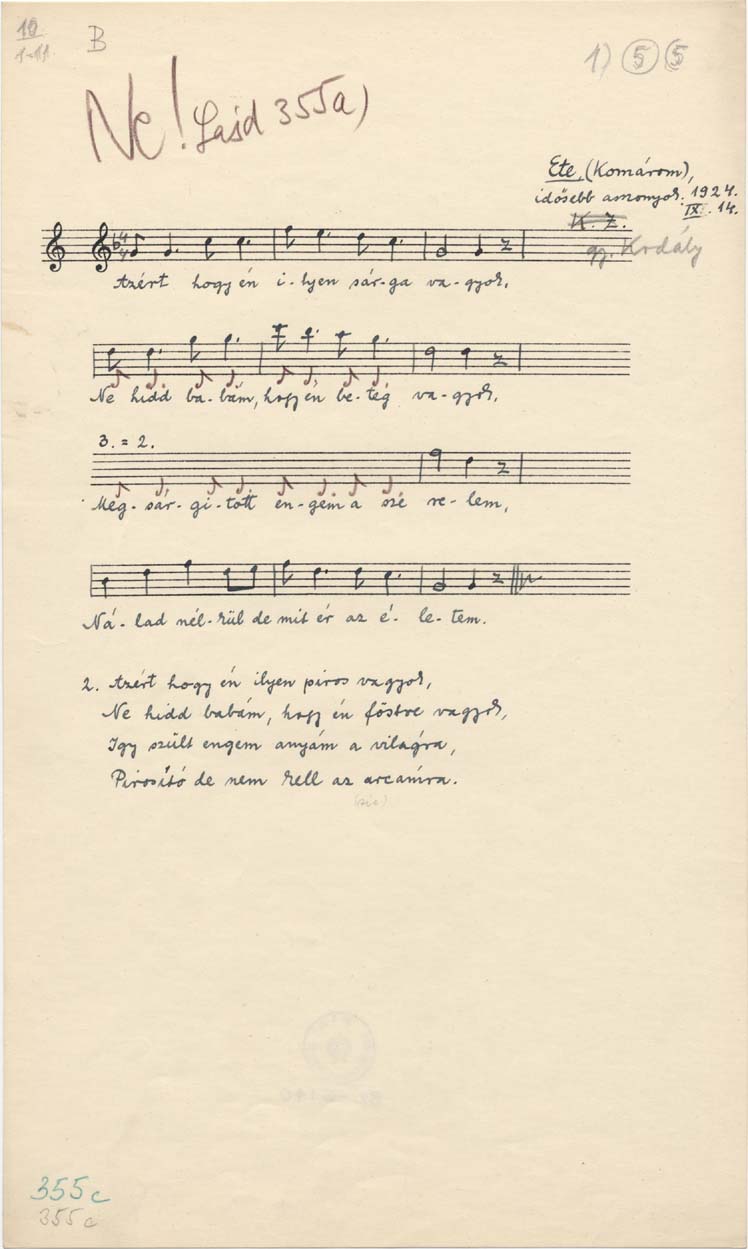 10
1-11
B
1) 5 5
Ne! Lásd 355a)
Ete, (Komárom),
idősebb asszonyok. 1924.
IX. 14.
K. Z.
gy. Kodály
Azért hogy én i-lyen sár-ga va-gyok,
Ne hidd ba-bám, hogy én be-teg va-gyok,
3. = 2.
Meg-sár-gi-tott en-gem a sze re-lem,
Ná-lad nél-kül de mit ér az é-le-tem.
2. Azért hogy én ilyen piros vagyok,
Ne hidd babám, hogy én föstve vagyok,
Igy szült engem anyám a világra,
Pirosító de nem kell az arcamra.
(sic)
355c
355c